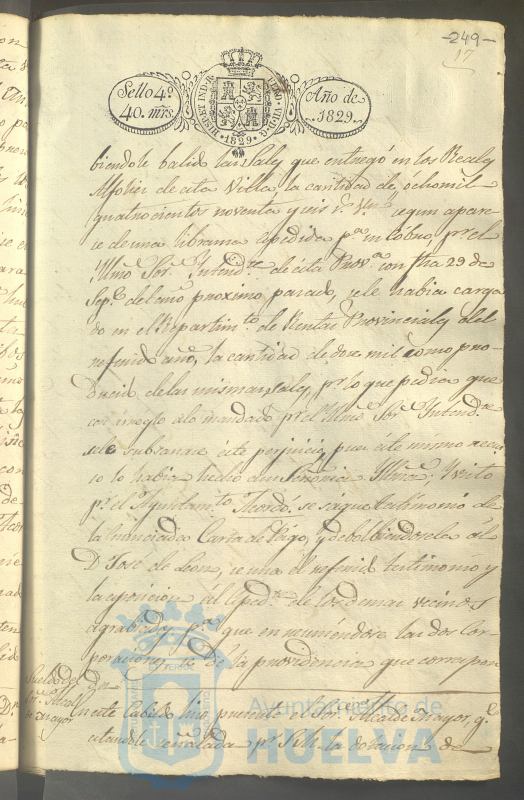 -249-
17
Sello 4º
40. mrs.
HISP. ET IND. R.
1829
Año de
1829.
biendole balido las Sales que entregó en los Reales
Alfolies de esta Villa la cantidad de ochomil
quatrocientos noventa y seis rs. vn. segun apare-
ce de una librama espedida pa. su cobro, pr. el
Ylmo. Sor. Yntende. de esta Prova. con fha 29 de
Sepe. del año proximo pasado, se le habia carga
do en el Repartimto. de Rentas Provinciales del
referido año, la cantidad de doce mil como pro-
ducto de las mismas sales, pr. lo que pedia que
con arreglo a lo mandado pr. el Ylmo. Sor. Yntende.
se le subsanase este perjuicio, pues este mismo recur
so lo habia hecho a su Señoria Yllma. Y visto
pr. el Ayuntamto. Acordó: se saque testimonio de
la enunciada Carta de Pago, y debolbiendosela al
D. José de Leon, se una el referido testimonio y
la esposicion al Espede. de los demas vecinos
agrabiados pa. que en reuniendose las dos Cor-
poraciones se dé la providencia que correspon
Sueldo del
Sr. Alcalde
mayor
da.
En este Cabildo hizo presente el Sor. Alcalde mayor, qe.
estandole señalada pr. S.M. la dotacion de
Ayuntamiento de
HUELVA